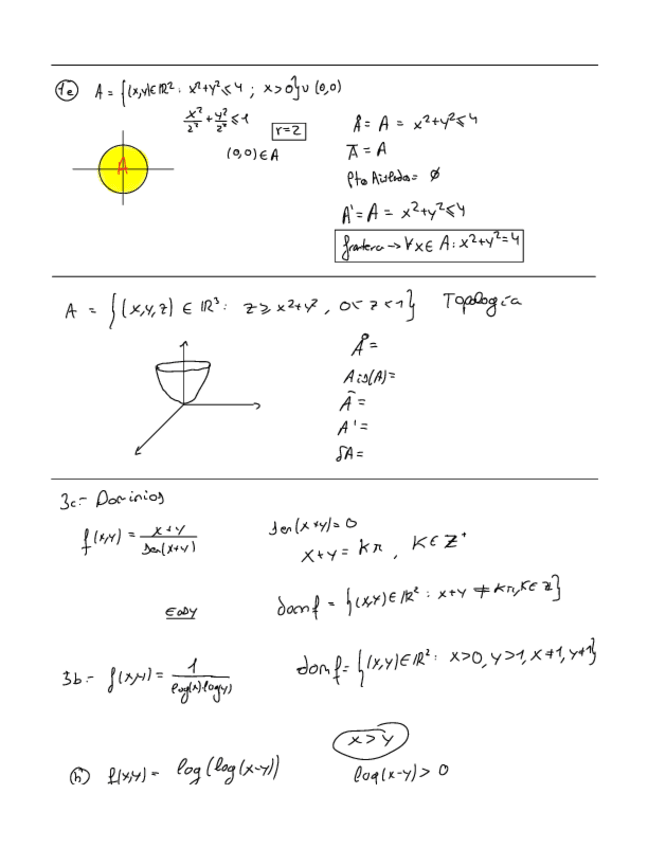 1e A = {(x,y)∈ℝ² : x²+y²≤4 ; x>0}∪(0,0)
x²/2² + y²/2² ≤ 1
r=2
(0,0)∈A
A
Å = A = x²+y²≤4
Ā = A
Pto Aislados = ∅
A' = A = x²+y²≤4
frontera → ∀x∈ A : x²+y²=4
A = {(x,y,z) ∈ ℝ³ : z ≥ x²+y², 0< z <1} Topología
Å =
Ais(A) =
Ā =
A' =
δA =
3c.- Dominios
f(x,y) = x+y / sen(x+y)
sen(x+y) = 0
x+y = kπ, k∈ℤ⁺
EASY
domf = {(x,y)∈ℝ² : x+y ≠ kπ, k∈ℤ}
3b.- f(x,y) = 1 / log(x)log(y)
domf = {(x,y)∈ℝ² : x>0, y>1, x≠1, y≠1}
x>y
h) f(x,y) = log(log(x-y))
log(x-y) > 0